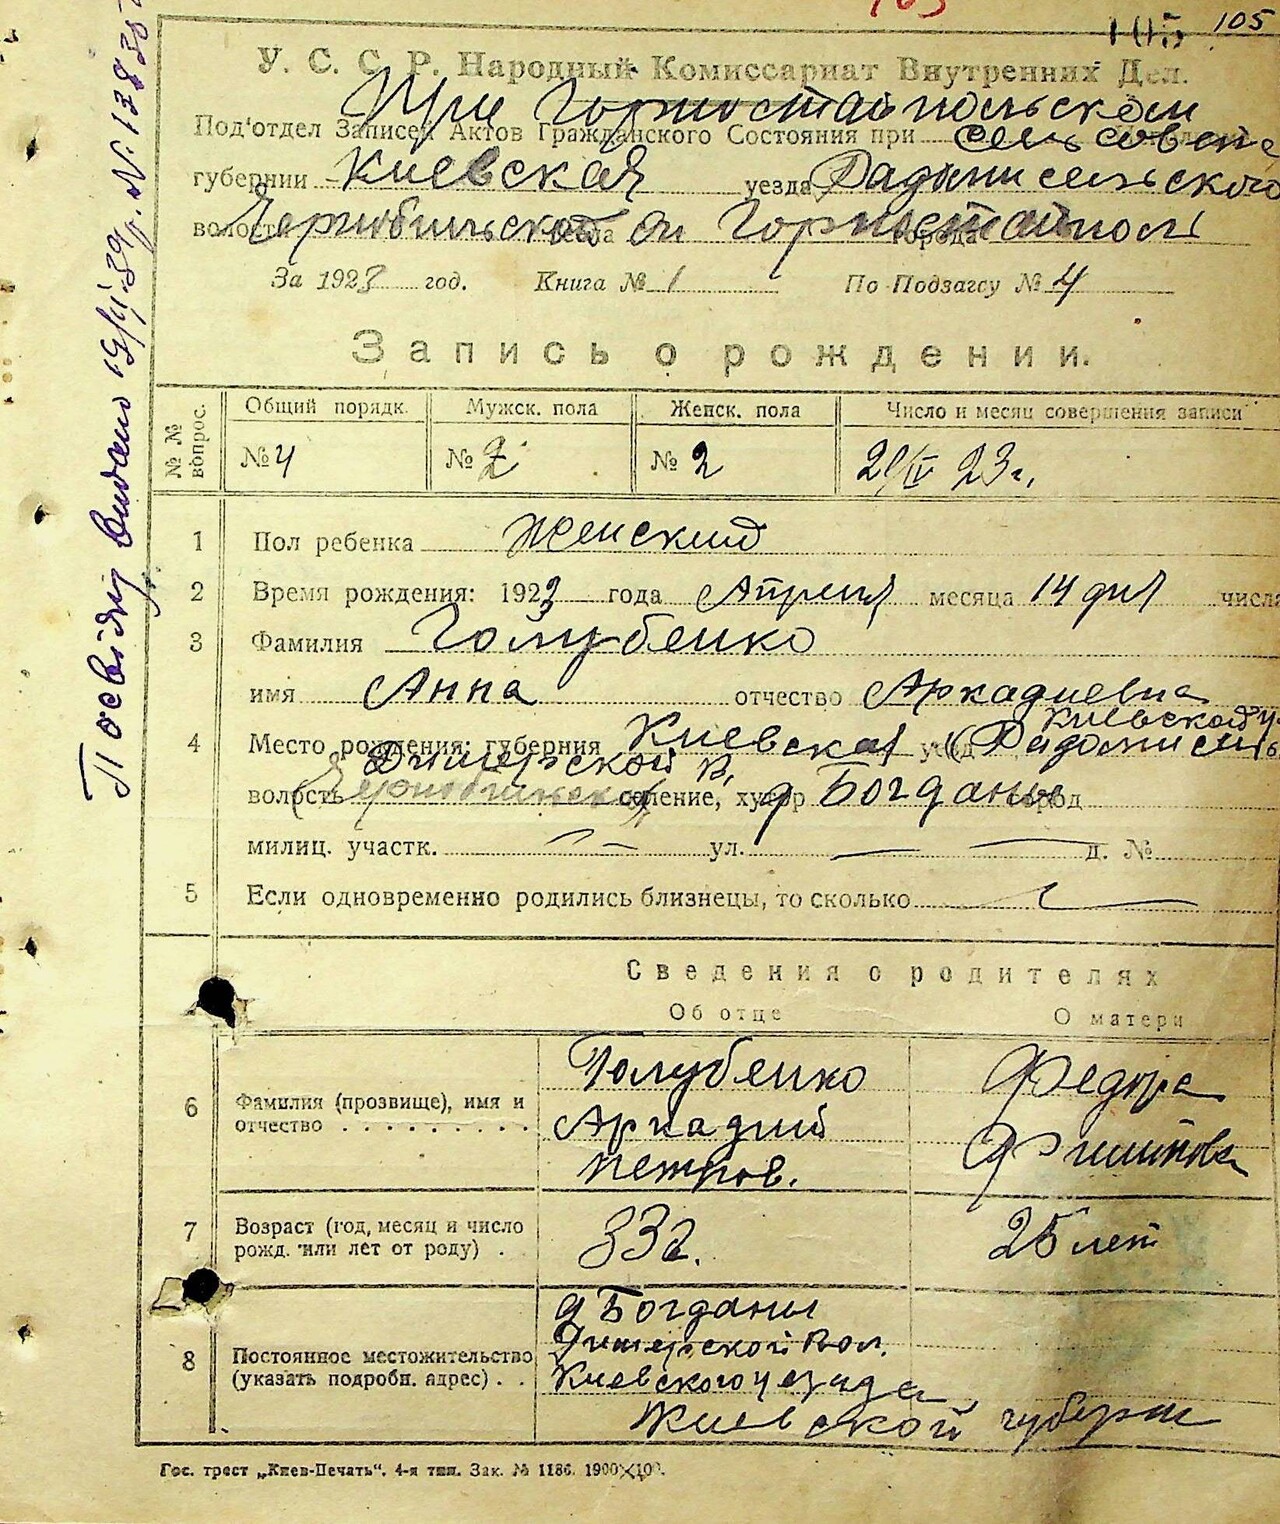 105 105
У. С. С. Р. Народный Комиссариат Внутренних Дел.
При Горностайпольском
Под'отдел Записей Актов Гражданского Состояния при сельсовете
губернии Киевская уезда Радомисельского
волости Чернобильской м Горностайполь города
За 1923 год. Книга № 1 По Подзагсу № 4
Запись о рождении.
№ № вопрос.
Общий порядк. Мужск. пола Женск. пола Число и месяц совершения записи
№ 4 № 2 № 2 21/IV 23 г.
1 Пол ребенка Женский
2 Время рождения: 1923 года Апреля месяца 14 дня числа
3 Фамилия Голубенко
имя Анна отчество Аркадиевна
Киевской у
4 Место рождения: губерния Киевская уезд (Радомисель
Дымерской В.
волость Чернобильской селение, хутор д Богданы город
милиц. участк. — ул. — д. № —
5 Если одновременно родились близнецы, то сколько
Сведения о родителях
Об отце О матери
6 Фамилия (прозвище), имя и отчество
Голубенко
Аркадий
Петров.
Федора
Филипова
7 Возраст (год, месяц и число рожд. или лет от роду)
33 г.
25 лет
8 Постоянное местожительство (указать подробн. адрес)
д Богданы
Дымерской вол.
Киевского уезда
Киевской губерни
Гос. трест „Киев-Печать". 4-я тип. Зак. № 1186. 1900×100.
Посвідку видано 19/II-39 р. №